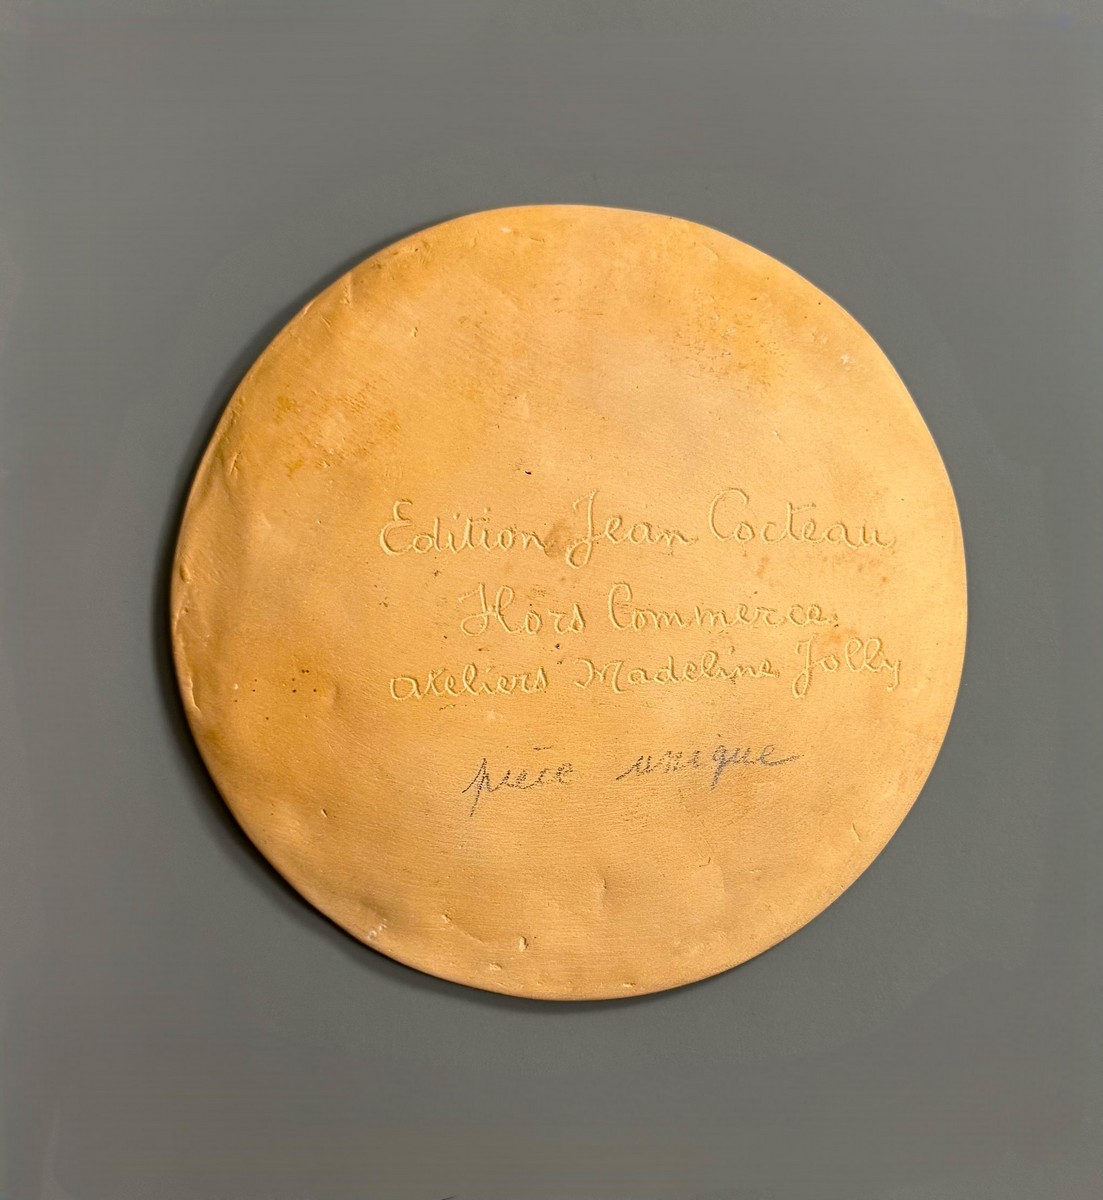 Edition Jean Cocteau
Hors Commerce
ateliers Madeline Jolly
pièce unique